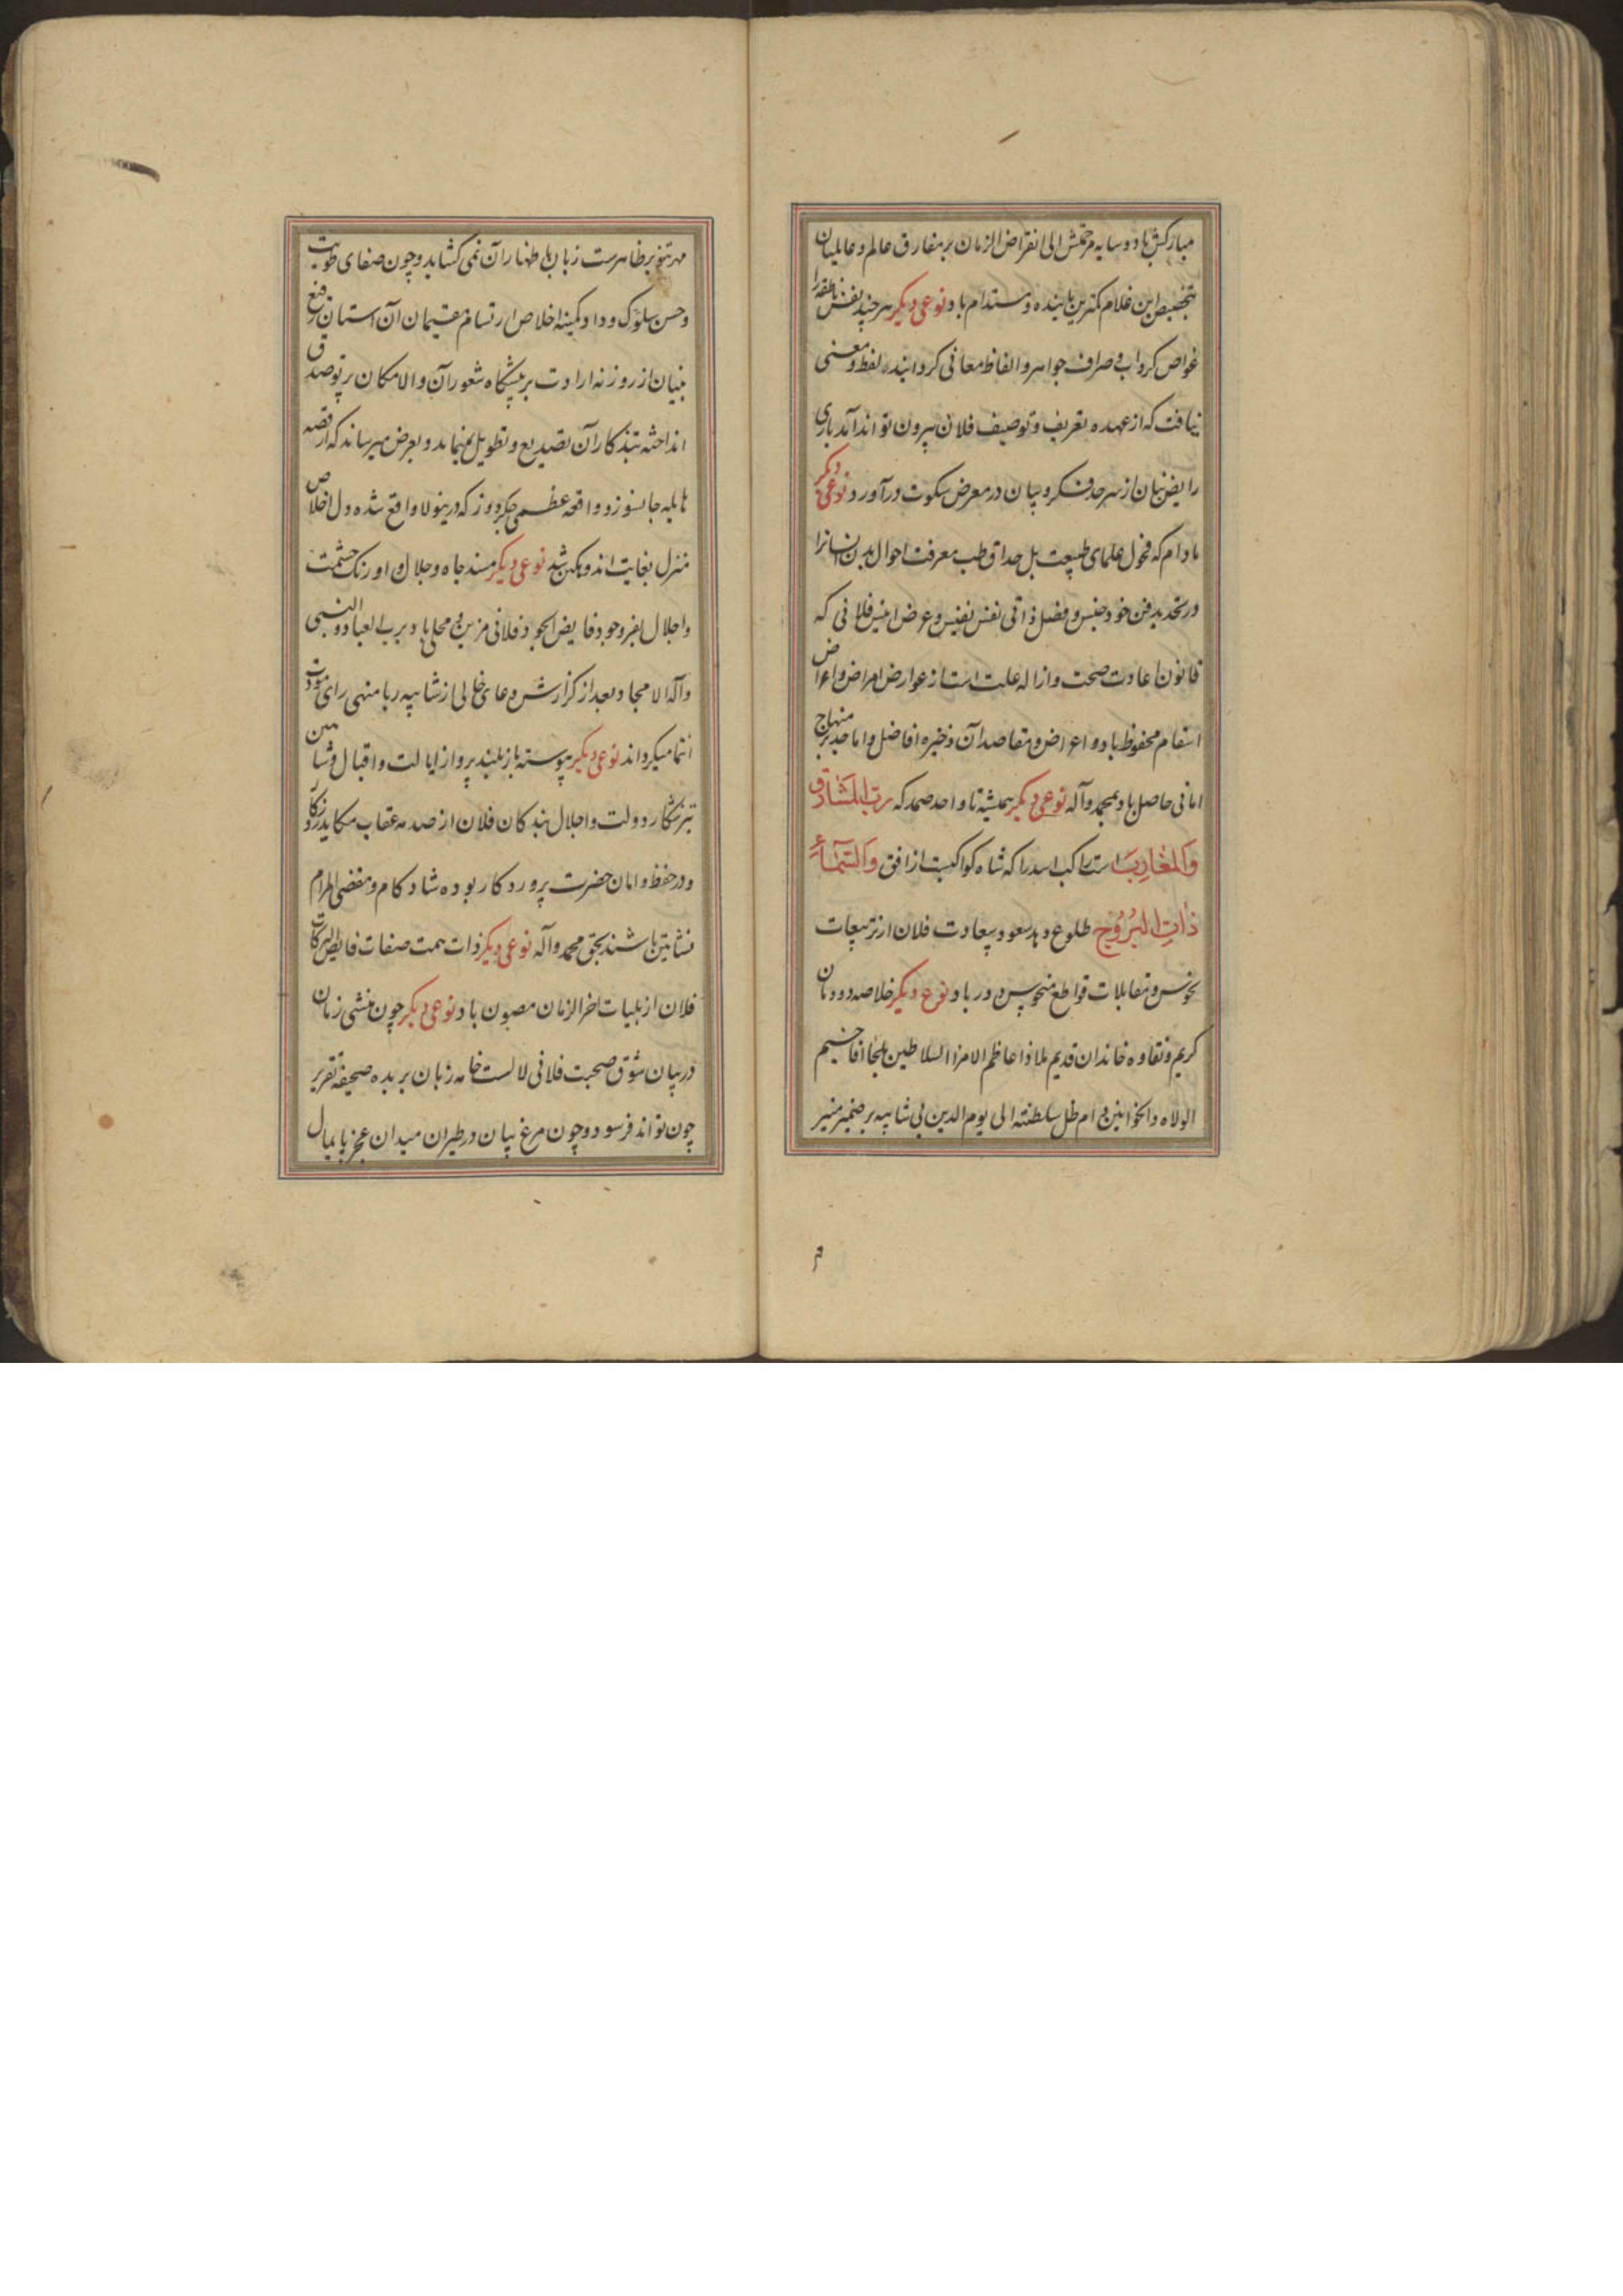 مبارکش باد و سایه مرحمتش الی انقراض الزمان بر مفارق عالم و عالمیان
بتخصیص این غلام کمترین پاینده و مستدام باد نوعی دیگر هر چند نفس ناطقه را
غواص گرداب و صراف جواهر و الفاظ معانی گردانید لفظ و معنی
نیافت که از عهده تعریف و توصیف فلان بیرون تواند آمد باری
رایض بیان از سرحد فکر و بیان در معرض سکوت درآورد نوعی دیگر
مادام که فحول علمای طبیعت بل حذاق طب معرفت احوال بدن انسانرا
در تحدید فن خود جنس و فصل ذاتی نفس نفیس و عرض فلانی که
قانون اعادت صحت و ازاله علت است از عوارض امراض و اعراض
اسقام محفوظ باد و اغراض و مقاصد آن ذخیره افاضل و اماجد بر منهاج
امانی حاصل باد بمحمد و آله نوعی دیگر همیشه تا واحد صمد که رب المشارق
والمغارب است راکب اسد را که شاه کواکبست از افق والسماء
ذات البروج طلوع دهد سعود سعادت فلان از تربیعات
نحوس و مقابلات قواطع منحوس دور باد نوع دیگر خلاصه دودمان
کریم و نقاوه خاندان قدیم ملاذ اعاظم الامرا السلاطین ملجا افاخیم
الولاه والخوانین دام ظل سلطنته الی یوم الدین بی شایبه بر ضمیر منیر
مهر تنویر ظاهرست زبان باظهار آن نمی گشاید و چون صفای طویت
و حسن سلوک و داد کمینه اخلاص ارتسام مقیمان آن استان رفیع
بنیان از روزنه ارادت بر پیشگاه شعور آن والامکان پرتو صدق
انداخته بتذکار آن تصدیع و تطویل نمینماید و بعرض میرساند که از قصه
هایله جانسوز و واقعه عظمی جگردوز که درینولا واقع شده دل اخلاص
منزل بغایت اندوهگین شد نوعی دیگر مسند جاه و جلال و اورنگ حشمت
و اجلال بفر وجود فایض الجود فلانی مزین و محلی باد برب العباد و النبی
و آله الامجاد بعد از گزارش دعای خالی از شایبه ریا منهی رای مودت
انتما میگرداند نوعی دیگر پیوسته باز بلند پرواز ایالت و اقبال و شاهین
تیز شکار دولت و اجلال بندگان فلان از صدمه عقاب مکاید روزگار
و در حفظ و امان حضرت پروردگار بوده شادکام و مقضی المرام
نشاتین باشند بحق محمد و آله نوعی دیگر ذات همت صفات فایض البرکات
فلان از بلیات اخر الزمان مصون باد نوعی دیگر چون منشی زمان
در بیان شوق صحبت فلانی لالست خامه زبان بریده صحیفه تقریر
چون تواند فرسود و چون مرغ بیان در طیران میدان عجز پایمال